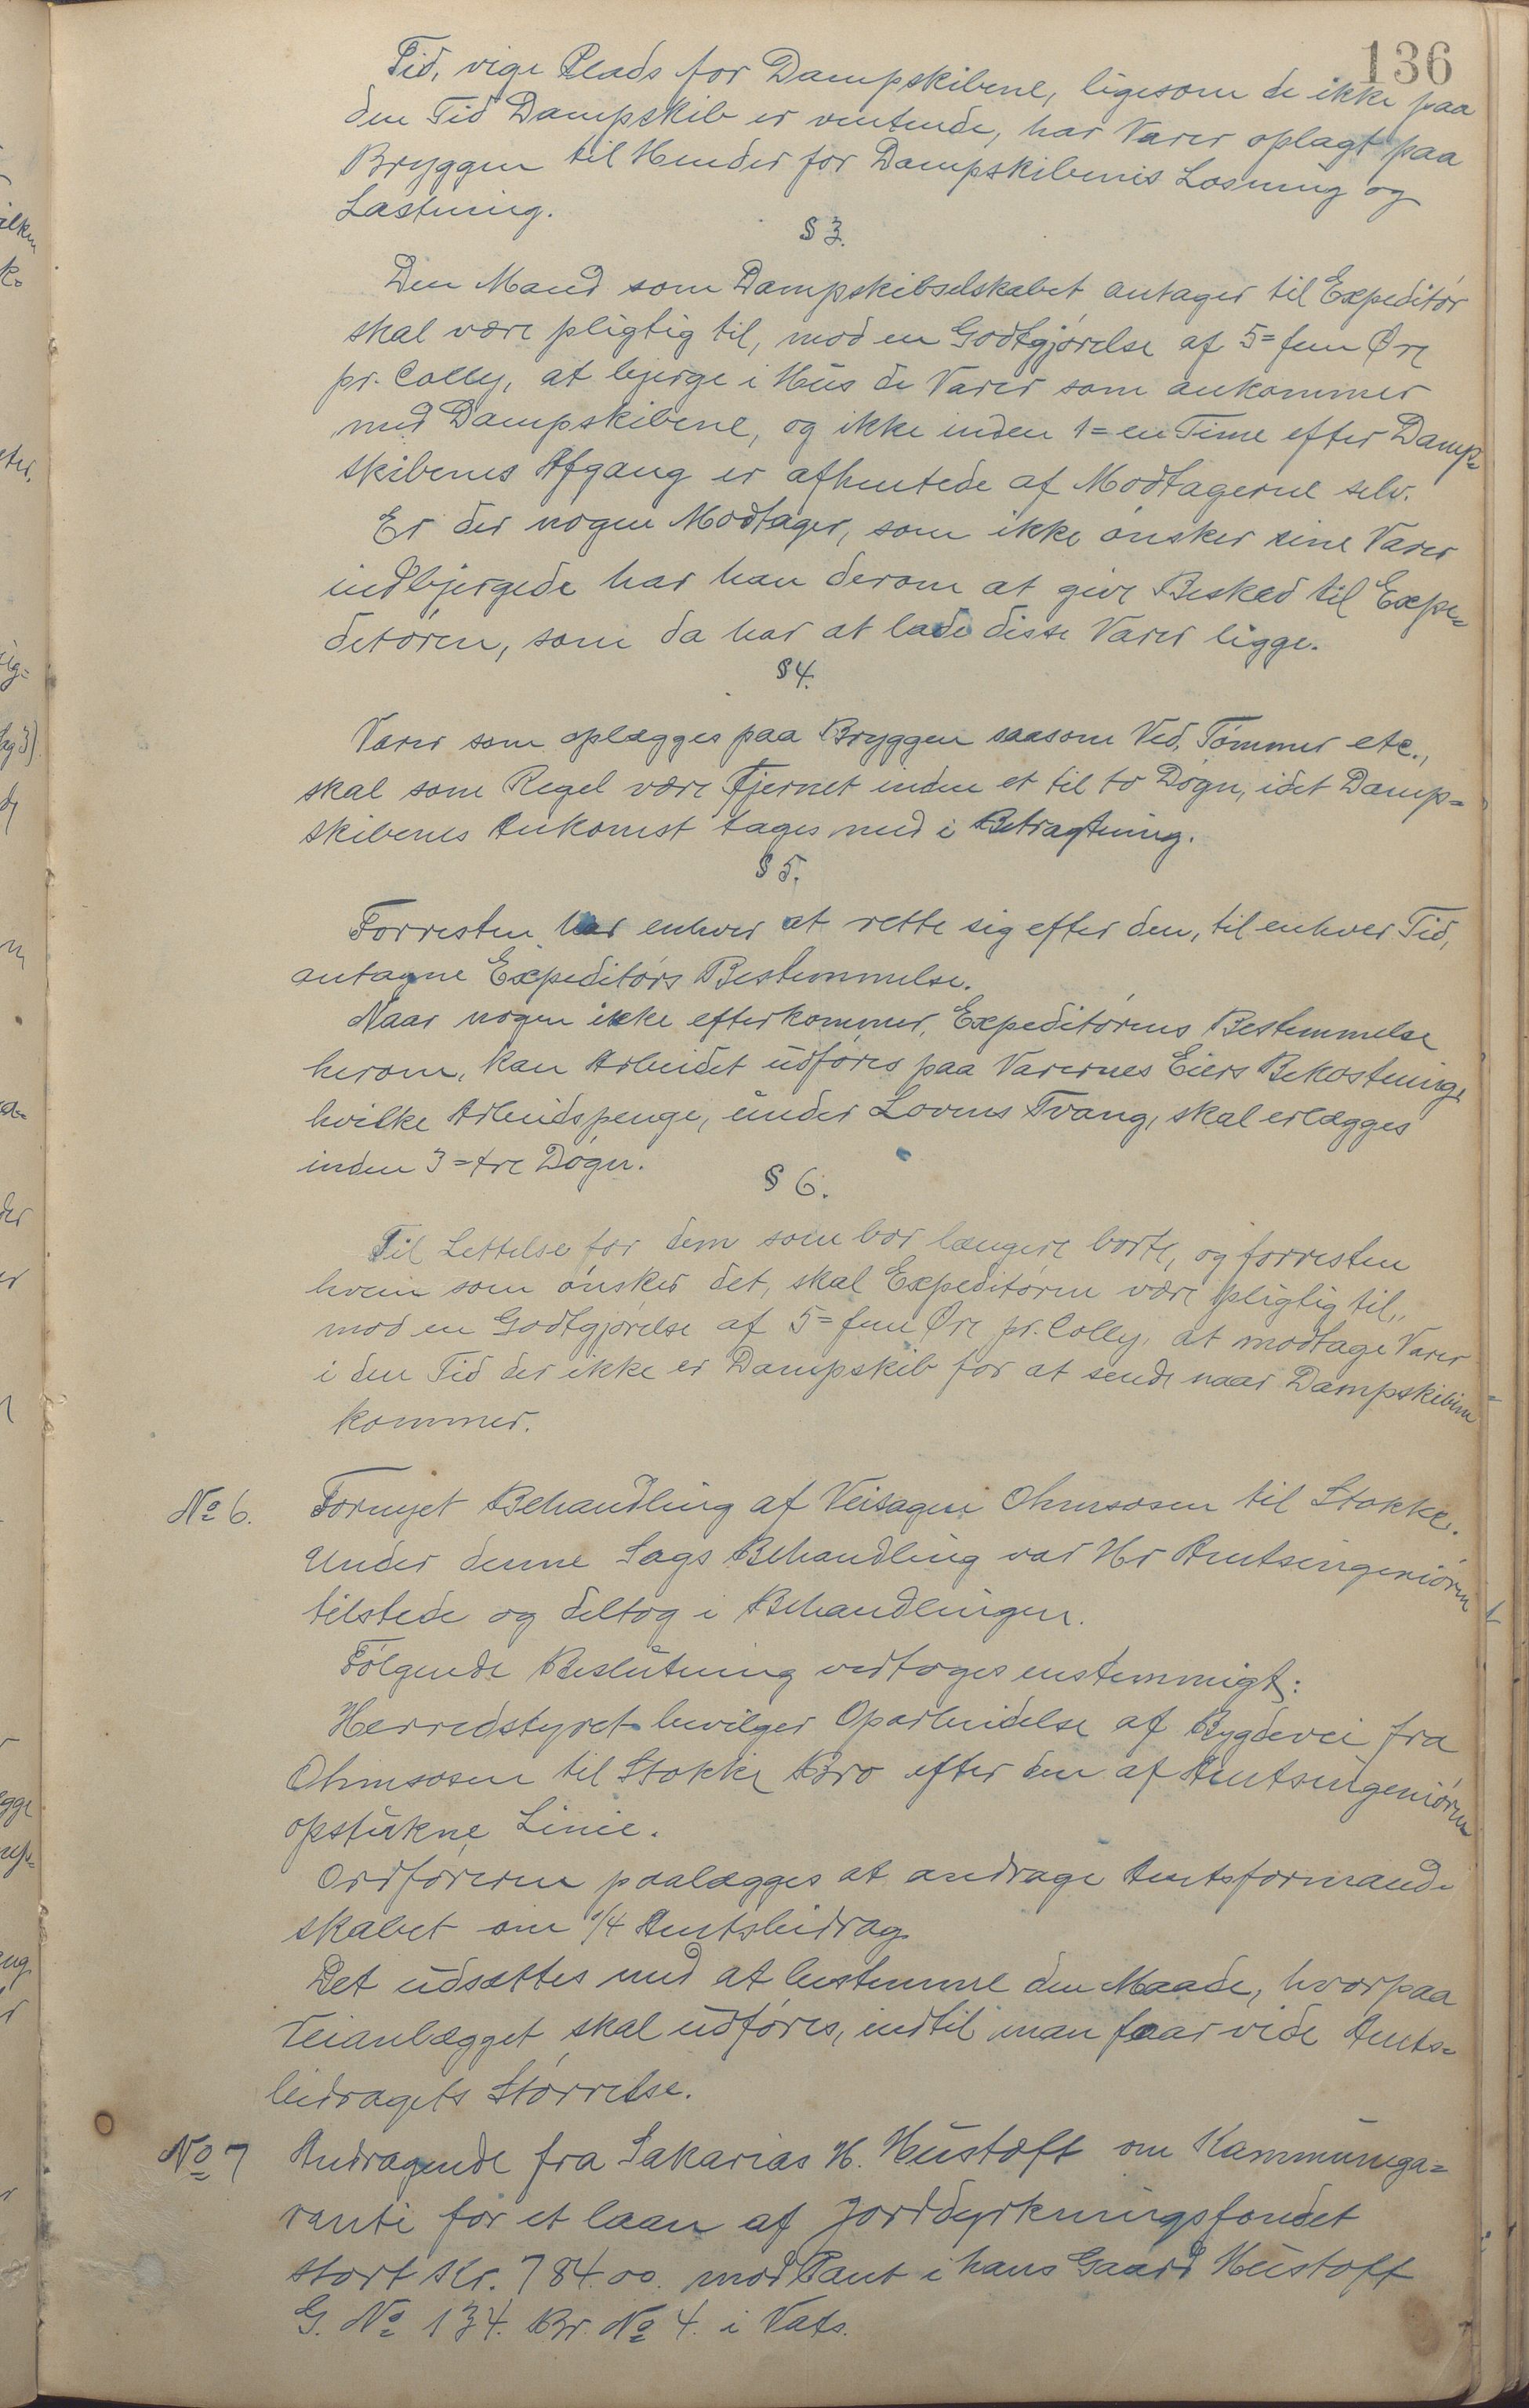 136
Tid, vige Plads for Dampskibene, ligesom de ikke paa
den Tid Dampskib er ventende, har Varer oplagt paa
Bryggen til Hinder for Dampskibenis Losning og
Lastning.
§ 3.
Den Mand som Dampskibselskabet antager til Expeditör
skal være pligtig til, mod en Godtgjörelse af 5= fem Øre
pr. Colly, at bjerge i Hus de Varer som ankommer
med Dampskibene, og ikke inden 1= en Time efter Damp=
skibenes Afgang er afhentede af Modtagerne selv.
Er der nogen Modtager, som ikke ønsker sine Varer
indbjergede har han derom at give Besked til Expe=
detören, som da har at lade disse Varer ligge.
§ 4.
Varer som oplægges paa Bryggen saasom Ved, Tömmer etc.,
skal som Regel være fjernet inden et til to Døgn, idet Damp=
skibenes Ankomst tages med i Betragtning.
§ 5.
Forresten har enhver at rette sig efter den, til enhver Tid,
antagne Expeditörs Bestemmelse.
Naar nogen ikke efterkommer, Expeditörens Bestemmelse
herom, kan Arbeidet udföres paa Varernes Eiers Bekostning,
hvilke Arbeidspenge, under Lovens Tvang, skal erlægges
inden 3= tre Dögn.
§ 6.
Til Lettelse for dem som bor længere borte, og forresten
hvem som ønsker det, skal Expeditören være pligtig til,
mod en Godtgjörelse af 5= fem Øre pr. Colly, at modtage Varer
i den Tid der ikke er Dampskib for at sende naar Dampskibene
kommer.
No 6. Fornyet Behandling af Veisagen Ohmsosen til Stokke.
Under denne Sags Behandling var Hr Amtsingeniören
tilstede og deltog i Behandlingen.
Fölgende Beslutning vedtoges enstemmigt:
Herredstyret bevilger Oparbeidelse af Bygdevei fra
Ohmsosen til Stokke Bro efter den af Amtsingeniören
opstukne Linie.
Ordföreren paalægges at andrage Amtsformand
skabet om 1/4 Amtsbidrag
Det udsættes med at bestemme den Maade, hvorpaa
Veianlægget skal udföres, indtil man faar vide Amts=
bidragets Störrelse.
No 7 Andragende fra Sakarias H. Hustoft om Kammunega=
ranti for et laan af Jorddyrkningsfondet
stort Kr. 784.00. mod Pant i hans Gaard Hustoft
G. No 134. Br. No 4. i Vats.